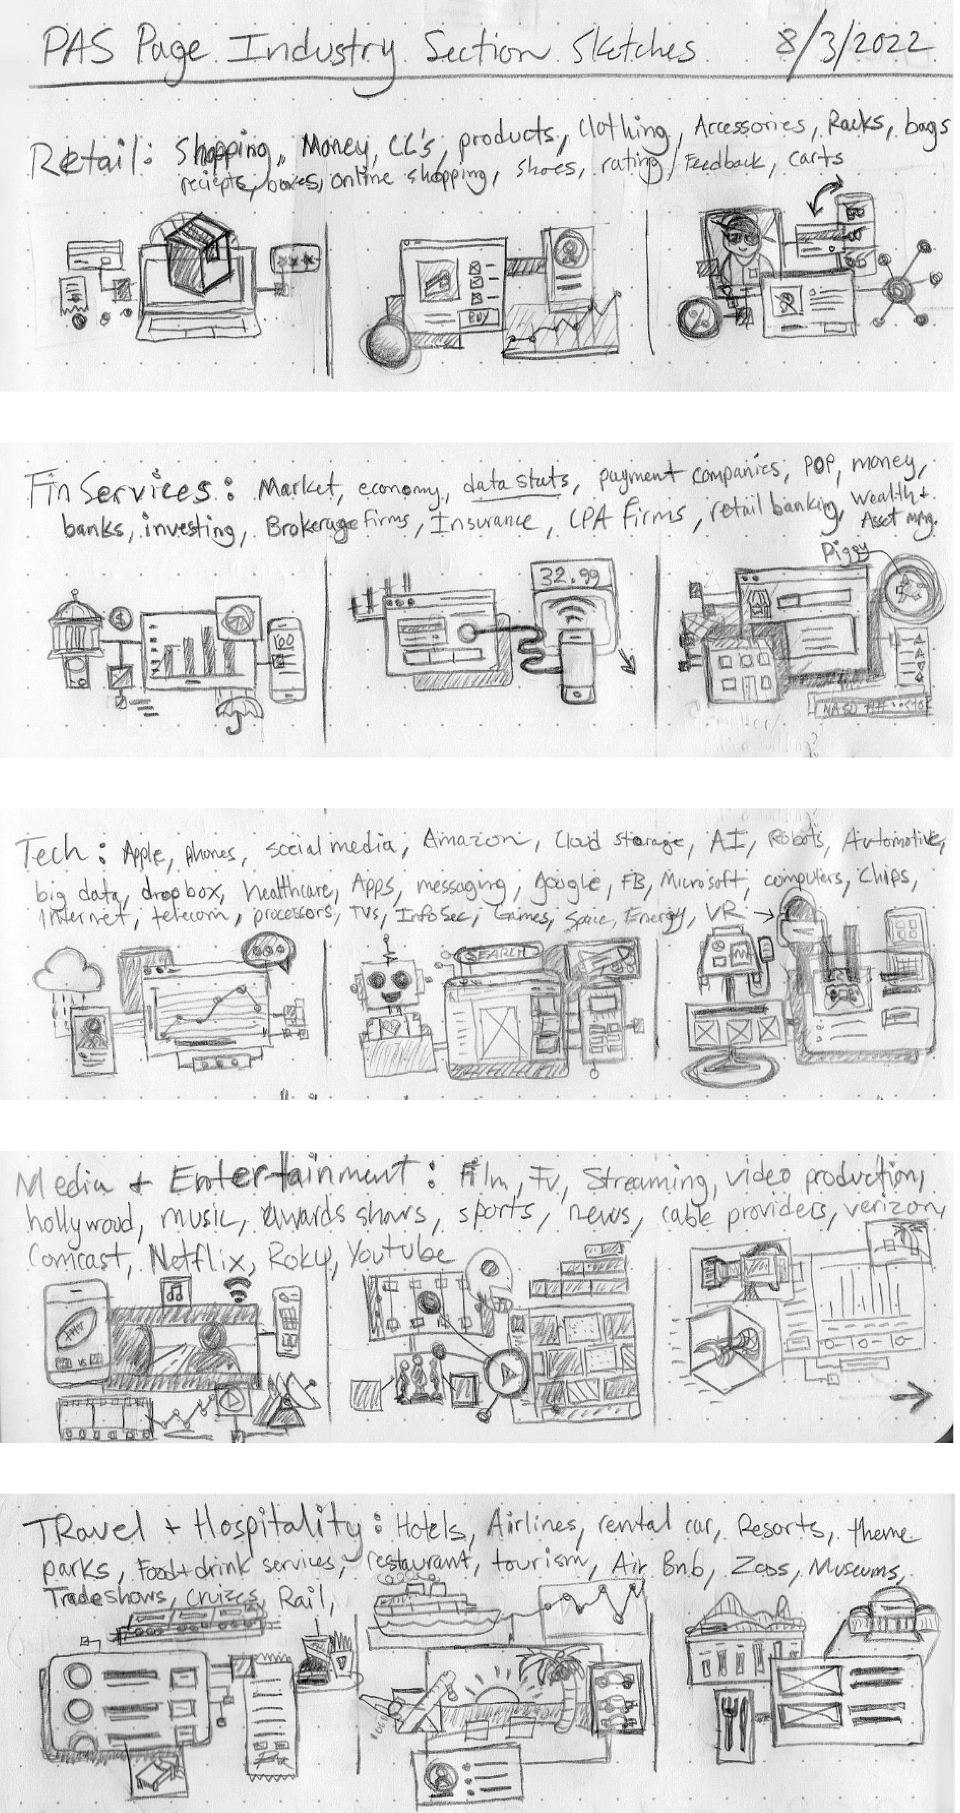 PAS Page Industry Section Sketches 8/3/2022
Retail: Shopping, Money, CC's, products, Clothing, Accessories, Racks, bags
reciepts, boxes, online shopping, shoes, rating/Feedback, carts
BUY
%
Fin Services: Market, economy, data stats, payment companies, POP, money,
banks, investing, Brokerage firms, Insurance, CPA Firms, retail banking, Wealth +
Asset mng.
Piggy
$
32.99
100
NASD
Tech: Apple, phones, social media, Amazon, Cloud storage, AI, Robots, Automotive,
big data, dropbox, healthcare, Apps, messaging, google, FB, Microsoft, computers, Chips,
Internet, telecom, processors, TVs, InfoSec, Games, Space, Energy, VR
SEARCH
Media + Entertainment: Film, Tv, Streaming, video production,
hollywood, music, awards shows, sports, news, cable providers, verizon,
Comcast, Netflix, Roku, Youtube
VS
TRavel + Hospitality: Hotels, Airlines, rental car, Resorts, theme
parks, Food+drink services, restaurant, tourism, Air Bnb, Zoos, Museums,
Tradeshows, cruizes, Rail,